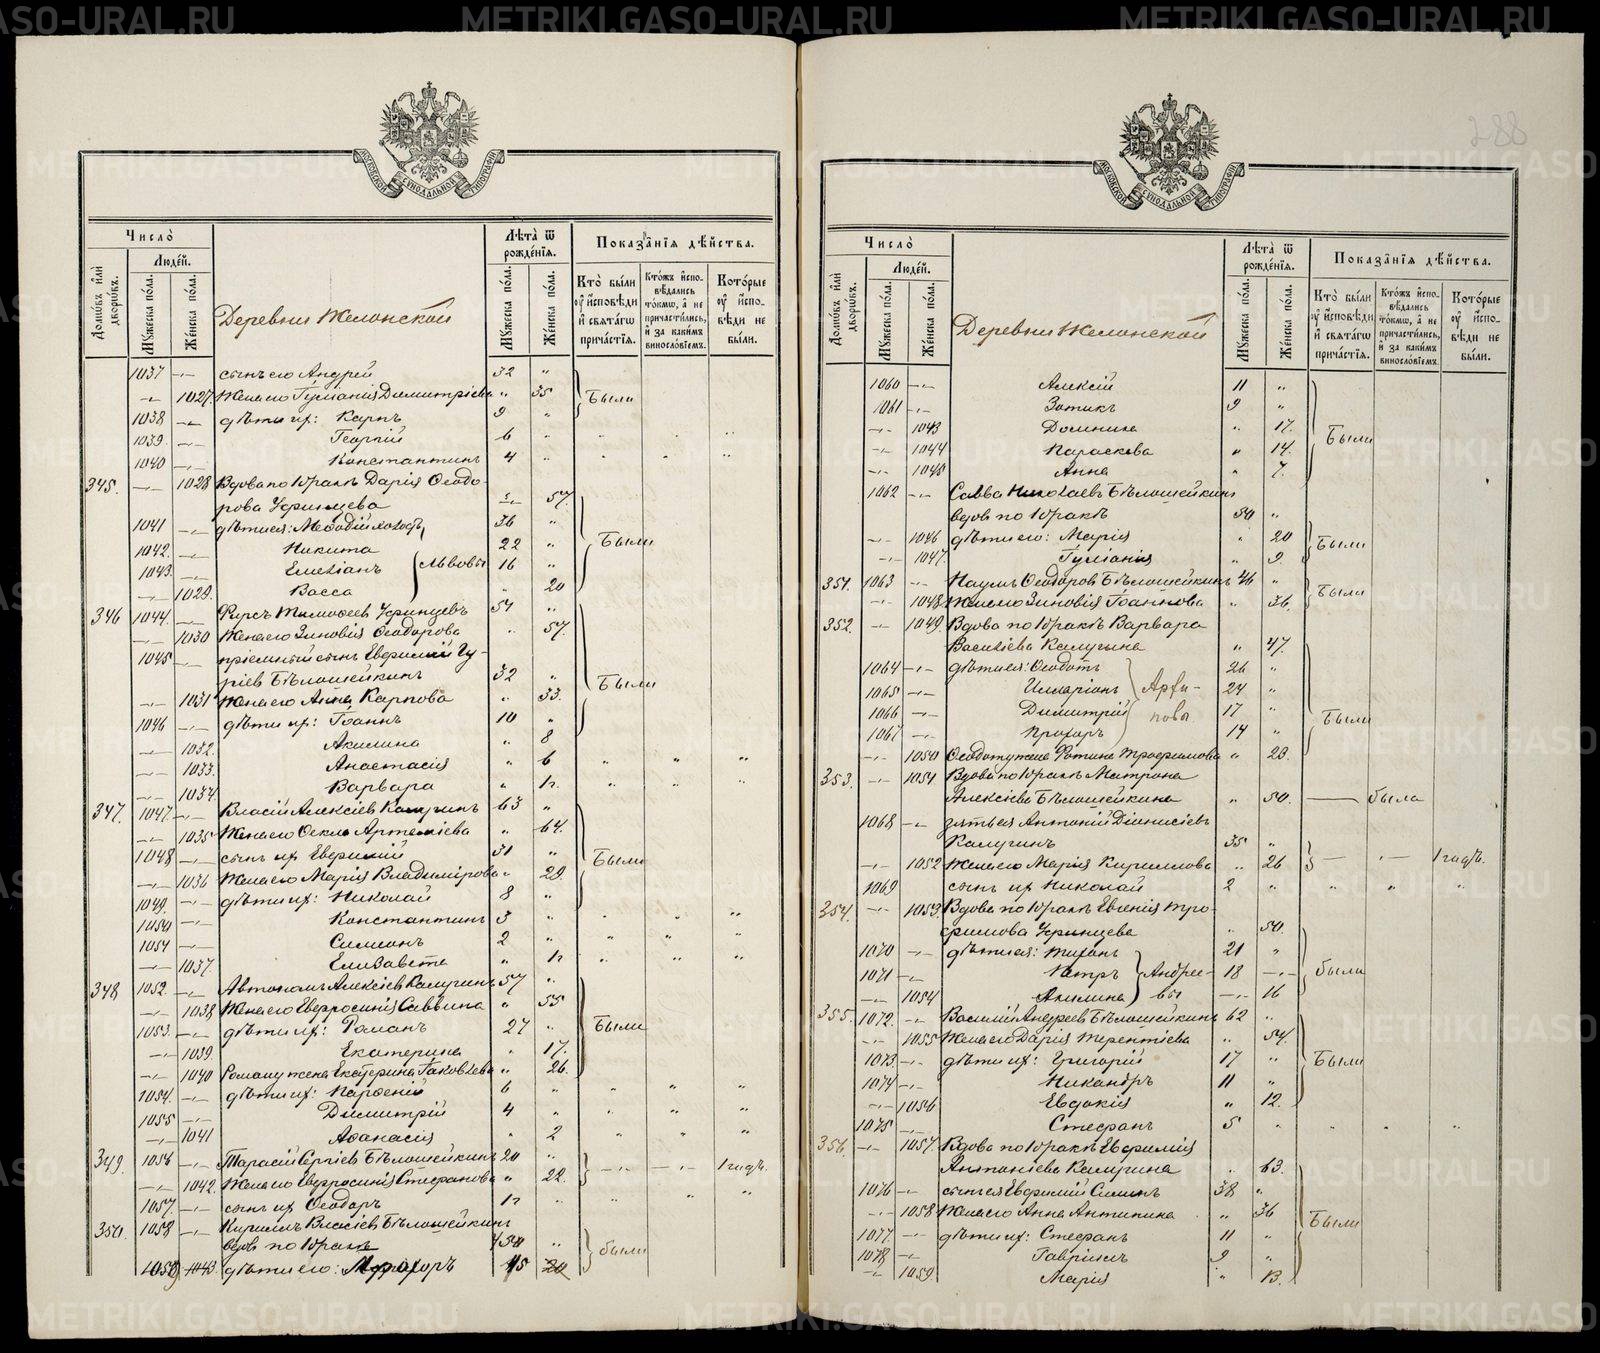 METRIKI.GASO-URAL.RU
МОСКОВСКОЙ СѴНОДАЛЬНОЙ ТИПОГРАФІИ
Число̀
Людей.
Домѡвъ илѝ дворѡвъ.
Мꙋжеска пола.
Женска пола.
Деревни Желонской
Лѣта̀ ѿ рождeнїѧ.
Мꙋжеска пола.
Женска пола.
Показанїѧ дѣйства.
Кто̀ были оу̓ исповѣди и свѧтагѡ причастїѧ.
Ктожъ исповѣдались токмѡ, а не причастились, и за какимъ винословїемъ.
Которые оу̓ исповѣди не были.
1037 -"- сынъ его Андрей 32 "
-"- 1027 Жена его Гуліанія Димитріева " 35 Были
1038 -"- дѣти их: Карпъ 9 "
1039 -"- Георгій 6 " " " "
1040 -"- Константинъ 4 " " " "
345. -"- 1028 Вдова по 1 бракѣ Дарія Ѳеодо-
рова Уфинцева -"- 57.
1041 -"- дѣти ея: Меѳодій холостъ 36 "
1042. -"- Никита 22 " Были
1043 -"- Емеліанъ Львовы 16 "
-"- 1029. Васса " 20
346 1044 -"- Фирсъ Тимоѳеев Уфинцевъ 57 "
-"- 1030 Жена его Зиновія Ѳеодорова " 57.
1045 -"- пріемный сынъ Евфимій Гу-
ріев Бѣлошейкинъ 32 " Были
-"- 1031 Жена его Анна Карпова " 33.
1046 -"- дѣти их: Іоаннъ 10 "
-"- 1032. Акилина " 8
-"- 1033. Анастасія " 6 " " "
-"- 1034. Варвара " " "
347. 1047 -"- Власій Алексіев Калугинъ 63 "
-"- 1035 Жена его Ѳекла Артеміева " 64.
1048 -"- сынъ их Евфимій 31 " Были
-"- 1036 Жена его Марія Владимірова " 29.
1049. -"- дѣти их: Николай 8 "
1050 -"- Константинъ 3 " " " "
1051 -"- Симеонъ 2 " " " "
-"- 1037 Елизавета " " " "
348 1052. -"- Автономъ Алексіев Калугинъ 57 "
-"- 1038 Жена его Евфросинія Саввина " 55
1053. -"- дѣти их: Романъ 27 " Были
-"- 1039. Екатерина " 17.
-"- 1040 Роману жена Екатерина Іаковлева " 26.
1054. -"- дѣти их: Парѳеній 6 " " " "
1055 -"- Димитрій 4 " " " "
-"- 1041 Аѳанасія " 2 " " "
349. 1056 -"- Тарасій Сергіев Бѣлошейкинъ 20 " -"- -"- 1 годъ.
-"- 1042. Жена его Евфросинія Стефанова " 22.
1057. -"- сынъ их Ѳеодоръ " " " "
350. 1058 -"- Кирилъ Власіев Бѣлошейкинъ
вдов по 1 бракѣ 50 " были
1059 1043 дѣти его: Прохоръ 15 20
288
Число̀
Людей.
Домѡвъ илѝ дворѡвъ.
Мꙋжеска пола.
Женска пола.
Деревни Желонской
Лѣта̀ ѿ рождeнїѧ.
Мꙋжеска пола.
Женска пола.
Показанїѧ дѣйства.
Кто̀ были оу̓ исповѣди и свѧтагѡ причастїѧ.
Ктожъ исповѣдались токмѡ, а не причастились, и за какимъ винословїемъ.
Которые оу̓ исповѣди не были.
1060 -"- Алексій 11 "
1061 -"- Зотикъ 9 "
-"- 1043 Домника " 17. Были
-"- 1044 Параскева " 14.
-"- 1045 Анна " 7.
1062 -"- Савва Николаевъ Бѣлошейкинъ
вдов по 1 бракѣ 50 "
-"- 1046 дѣти его: Марія " 20 Были
-"- 1047. Гуліанія " 9.
351. 1063 -"- Наумъ Ѳеодоров Бѣлошейкинъ 46 " Были
-"- 1048 Жена его Зиновія Іоаннова " 36.
352. -"- 1049. Вдова по 1 бракѣ Варвара
Василіева Калугина " 47.
1064 -"- дѣти ея: Ѳеодотъ 26 "
1065 -"- Илларіонъ Архи- 24 "
1066 -"- Димитрій повы 17 " Были
1067 -"- Прохоръ 14 "
-"- 1050 Ѳеодоту жена Фотина Трофимова " 23.
353. -"- 1051 Вдова по 1 бракѣ Матрона
Алексіева Бѣлошейкина " 50. была
1068 -"- зятья Антоній Діонисіев
Калугинъ 35 "
-"- 1052 Жена его Марія Кириллова " 26 -"- 1 годъ.
1069 сынъ их Николай 2 " " " "
354. -"- 1053. Вдова по 1 бракѣ Евгенія Тро-
фимова Уфинцева " 50.
1070 -"- дѣти ея: Тихонъ 21 "
1071 -"- Петръ Андрее- 18 -"- были
-"- 1054 Акилина вы -"- 16
355. 1072. -"- Василій Андреев Бѣлошейкинъ 62 "
-"- 1055 Жена его Дарія Терентіева " 54.
1073 -"- дѣти их: Григорій 17 " Были
1074 -"- Никандръ 11 "
-"- 1056 Евдокія " 12.
1075 Стефанъ 5 " " " "
356. -"- 1057. Вдова по 1 бракѣ Евфимія
Антоніева Калугина " 63.
1076 -"- сынъ ея Евфимій Симинъ 38 "
-"- 1058 Жена его Анна Антипина " 36 Были
1077 -"- дѣти их: Стефанъ 11 "
1078 -"- Гавріилъ 9 "
-"- 1059. Марія " 13.